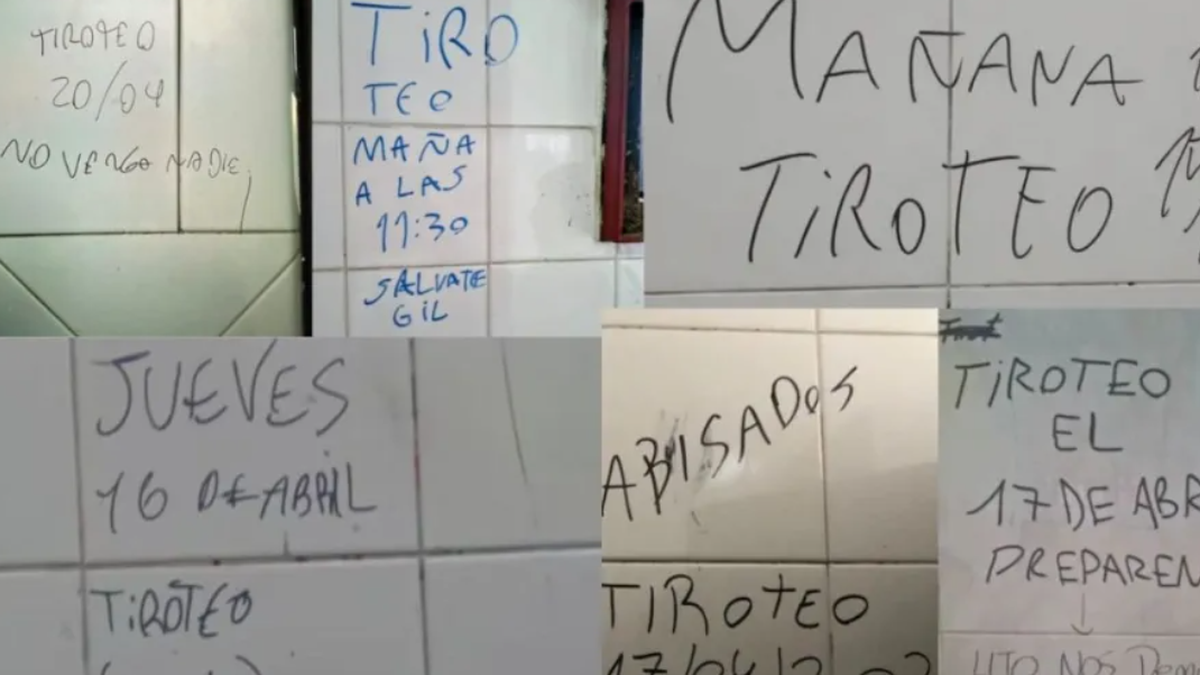 TIROTEO
20/04
NO VENGA NADIE
TIRO
TEO
MAÑA
A LAS
11:30
SALVATE
GIL
MAÑANA
TIROTEO
JUEVES
16 DE ABRIL
TIROTEO
ABISADOS
TIROTEO
TIROTEO
EL
17 DE ABR
PREPAREN
NOS